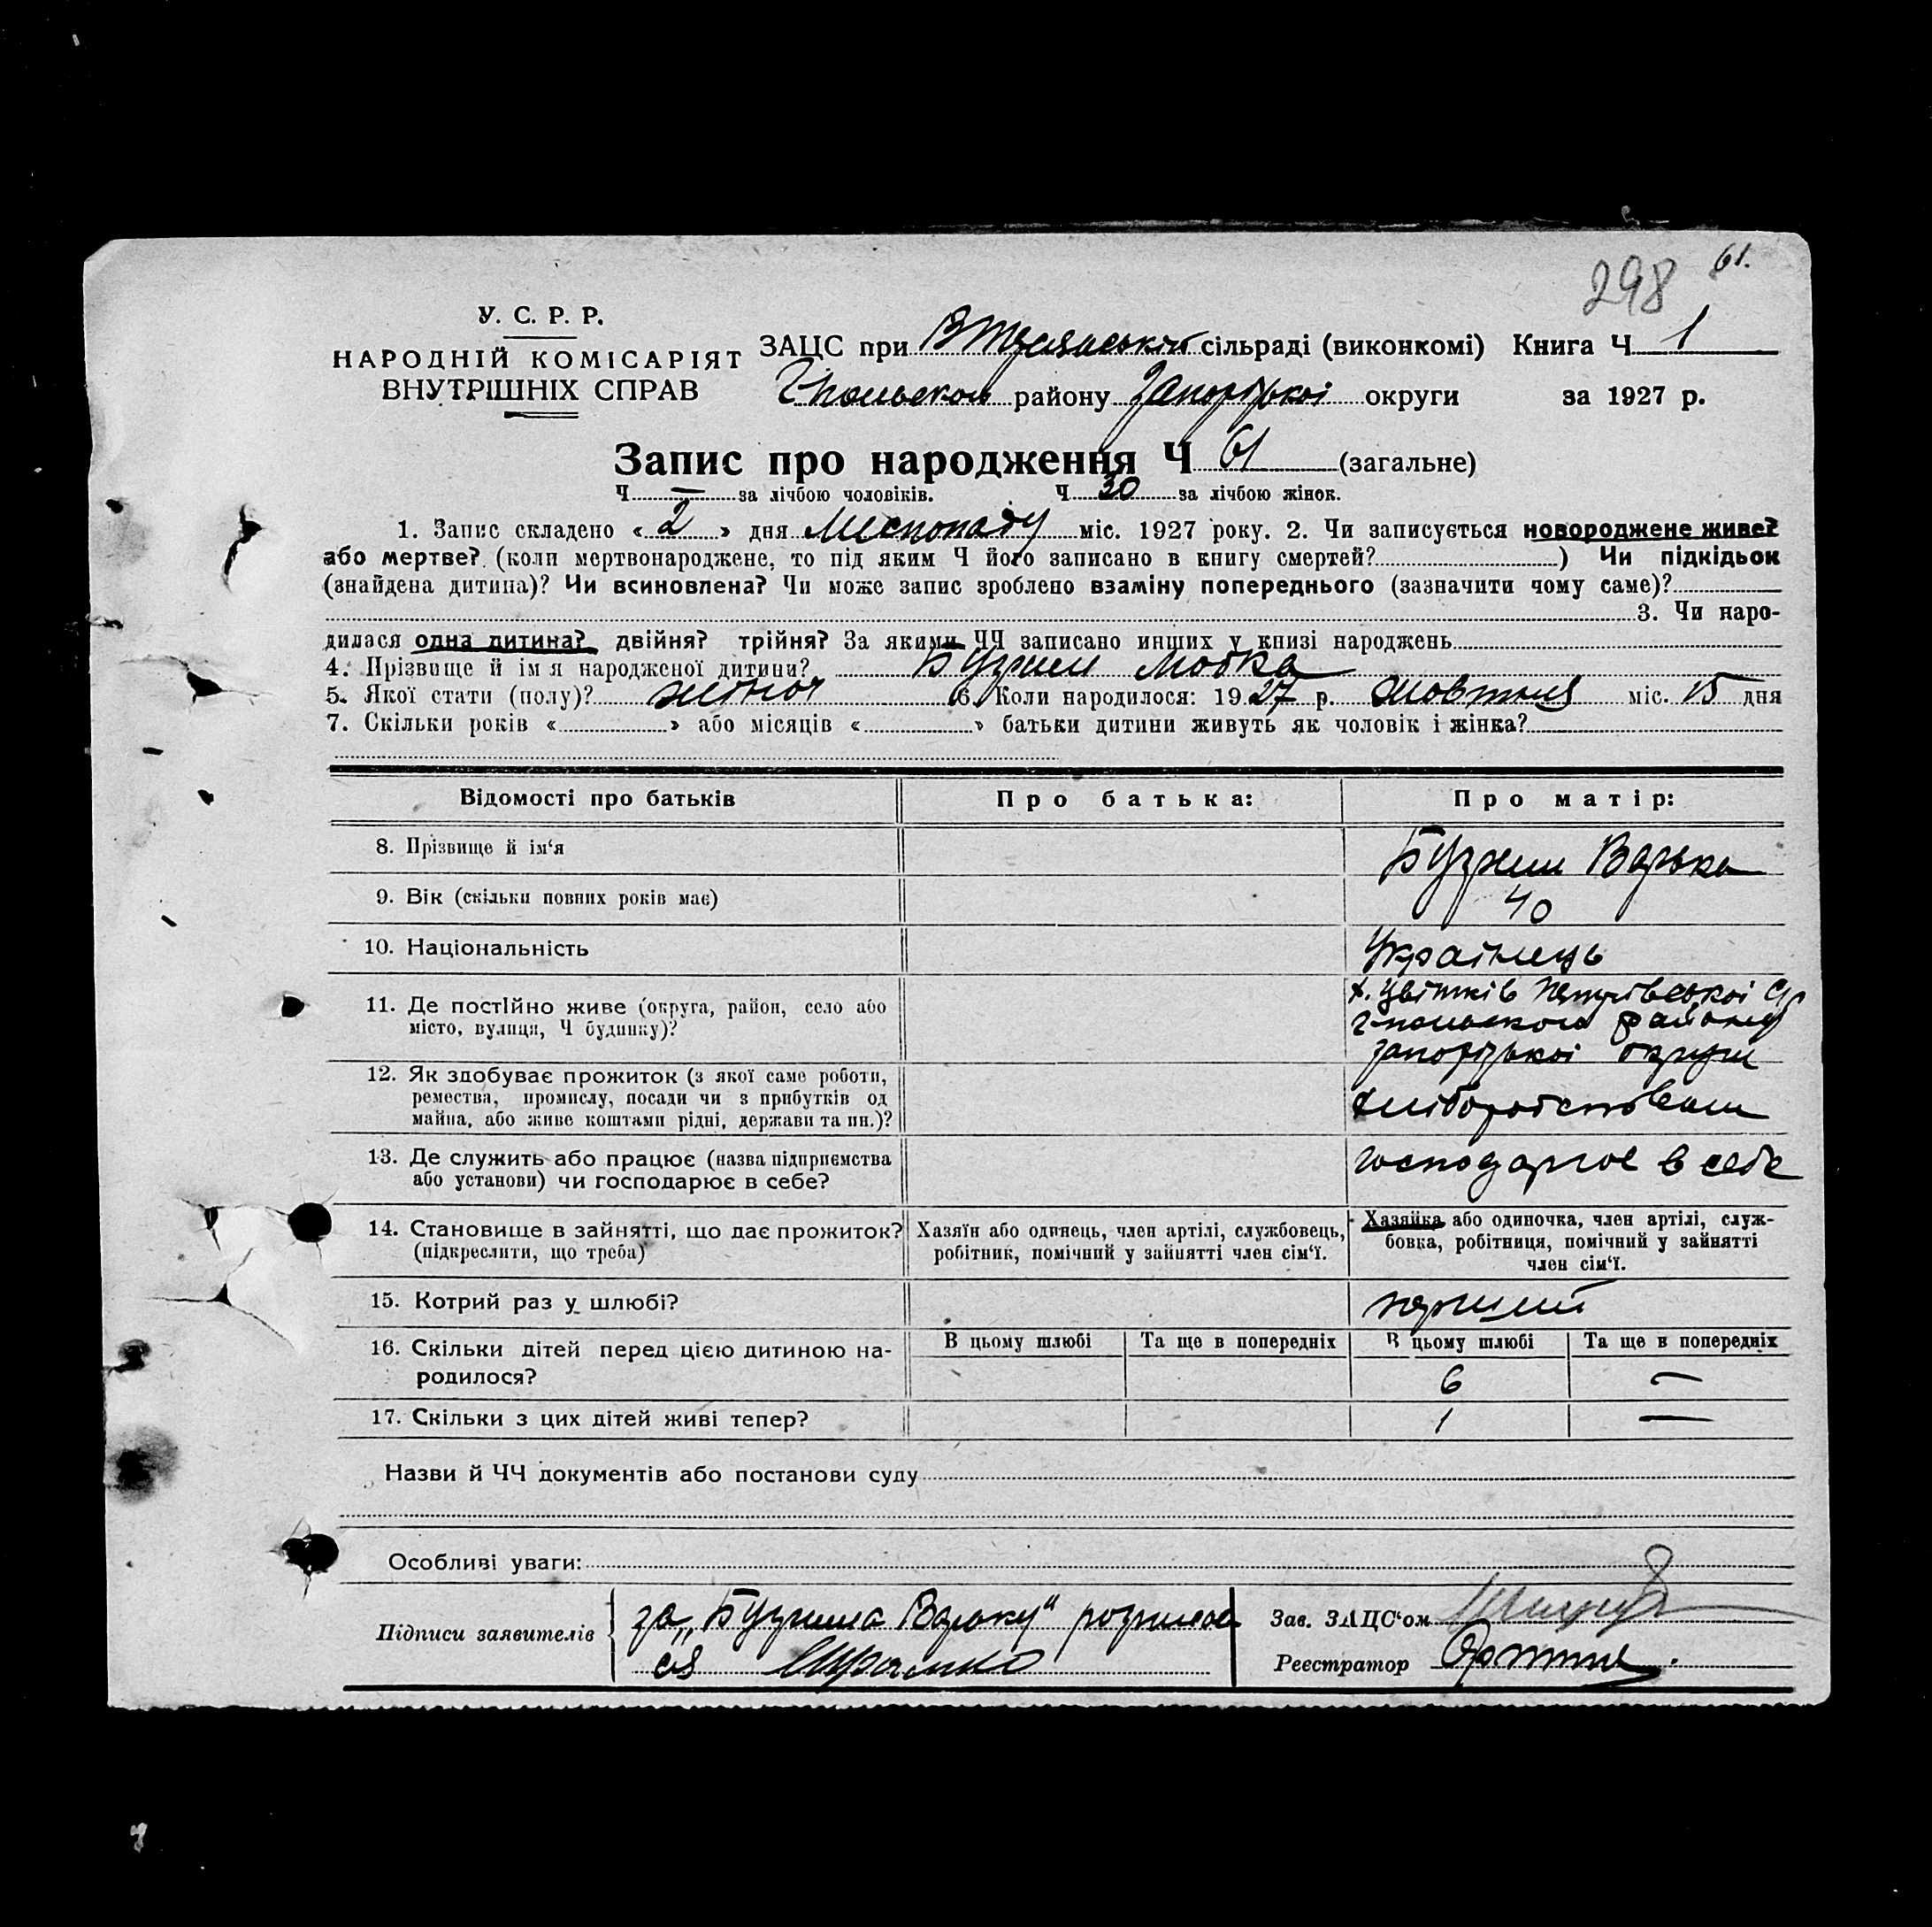 298 61.
У. С. Р. Р.
НАРОДНІЙ КОМІСАРІЯТ
ВНУТРІШНІХ СПРАВ
ЗАЦС при сільраді (виконкомі) Книга Ч 1
району Запорізької округи за 1927 р.
Запис про народження Ч 61 (загальне)
Ч — за лічбою чоловіків. Ч 30 за лічбою жінок.
1. Запис складено « 2 » дня Листопаду міс. 1927 року. 2. Чи записується новороджене живе?
або мертве? (коли мертвонароджене, то під яким Ч його записано в книгу смертей? ) Чи підкідьок
(знайдена дитина)? Чи всиновлена? Чи може запис зроблено взаміну попереднього (зазначити чому саме)?
3. Чи наро-
дилася одна дитина? двійня? трійня? За якими ЧЧ записано инших у книзі народжень
4. Прізвище й ім я народженої дитини?
5. Якої стати (полу)? жіноч 6. Коли народилося: 19 27 р. жовтня міс. 15 дня
7. Скільки років « » або місяців « » батьки дитини живуть як чоловік і жінка?
Відомості про батьків Про батька: Про матір:
8. Прізвище й ім‘я Варька
9. Вік (скільки повних років має) 40
10. Національність Українець
11. Де постійно живе (округа, район, село або
місто, вулиця, Ч будинку)?
х. Цвітків
району
запорізької округи
12. Як здобуває прожиток (з якої саме роботи,
ремества, промислу, посади чи з прибутків од
майна, або живе коштами рідні, держави та ин.)?
хліборобством
13. Де служить або працює (назва підприємства
або установи) чи господарює в себе?
господарює в себе
14. Становище в зайнятті, що дає прожиток?
(підкреслити, що треба)
Хазяїн або одинець, член артілі, службовець,
робітник, помічний у зайнятті член сім‘ї.
Хазяйка або одиночка, член артілі, служ-
бовка, робітниця, помічний у зайнятті
член сім‘ї.
15. Котрий раз у шлюбі? перший
В цьому шлюбі Та ще в попередніх В цьому шлюбі Та ще в попередніх
16. Скільки дітей перед цією дитиною на-
родилося? 6 —
17. Скільки з цих дітей живі тепер? 1 —
Назви й ЧЧ документів або постанови суду
Особливі уваги:
Підписи заявителів за „ Варьку“ розписав
ся
Зав. ЗАЦС‘ом
Реєстратор